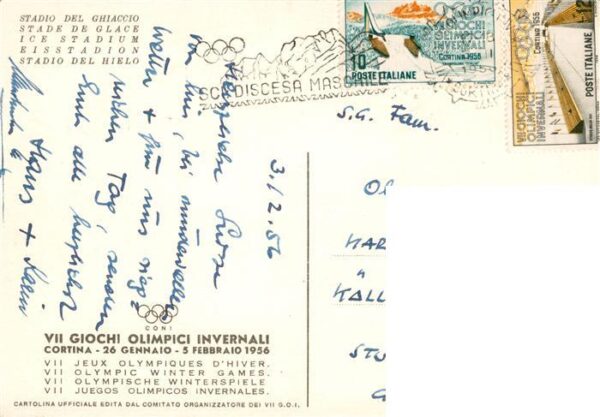 STADIO DEL GHIACCIO
STADE DE GLACE
ICE STADIUM
EISSTADION
STADIO DEL HIELO
VII GIOCHI
OLIMPICI
INVERNALI
CORTINA 1956
10 POSTE ITALIANE
12
POSTE ITALIANE
VII GIOCHI
OLIMPICI
INVERNALI
CORTINA 1956
SCI DISCESA MASCHILE
S.G. Fam.
3./2.56
Herzliche Grüsse
von hier, bei wundervollem
Wetter + für uns
Tag, senden
Euch alle herzlichst
Hans +
HAR
KALL
CONI
VII GIOCHI OLIMPICI INVERNALI
CORTINA - 26 GENNAIO - 5 FEBBRAIO 1956
VII JEUX OLYMPIQUES D'HIVER.
VII OLYMPIC WINTER GAMES.
VII OLYMPISCHE WINTERSPIELE
VII JUEGOS OLIMPICOS INVERNALES.
CARTOLINA UFFICIALE EDITA DAL COMITATO ORGANIZZATORE DEI VII G.O.I.